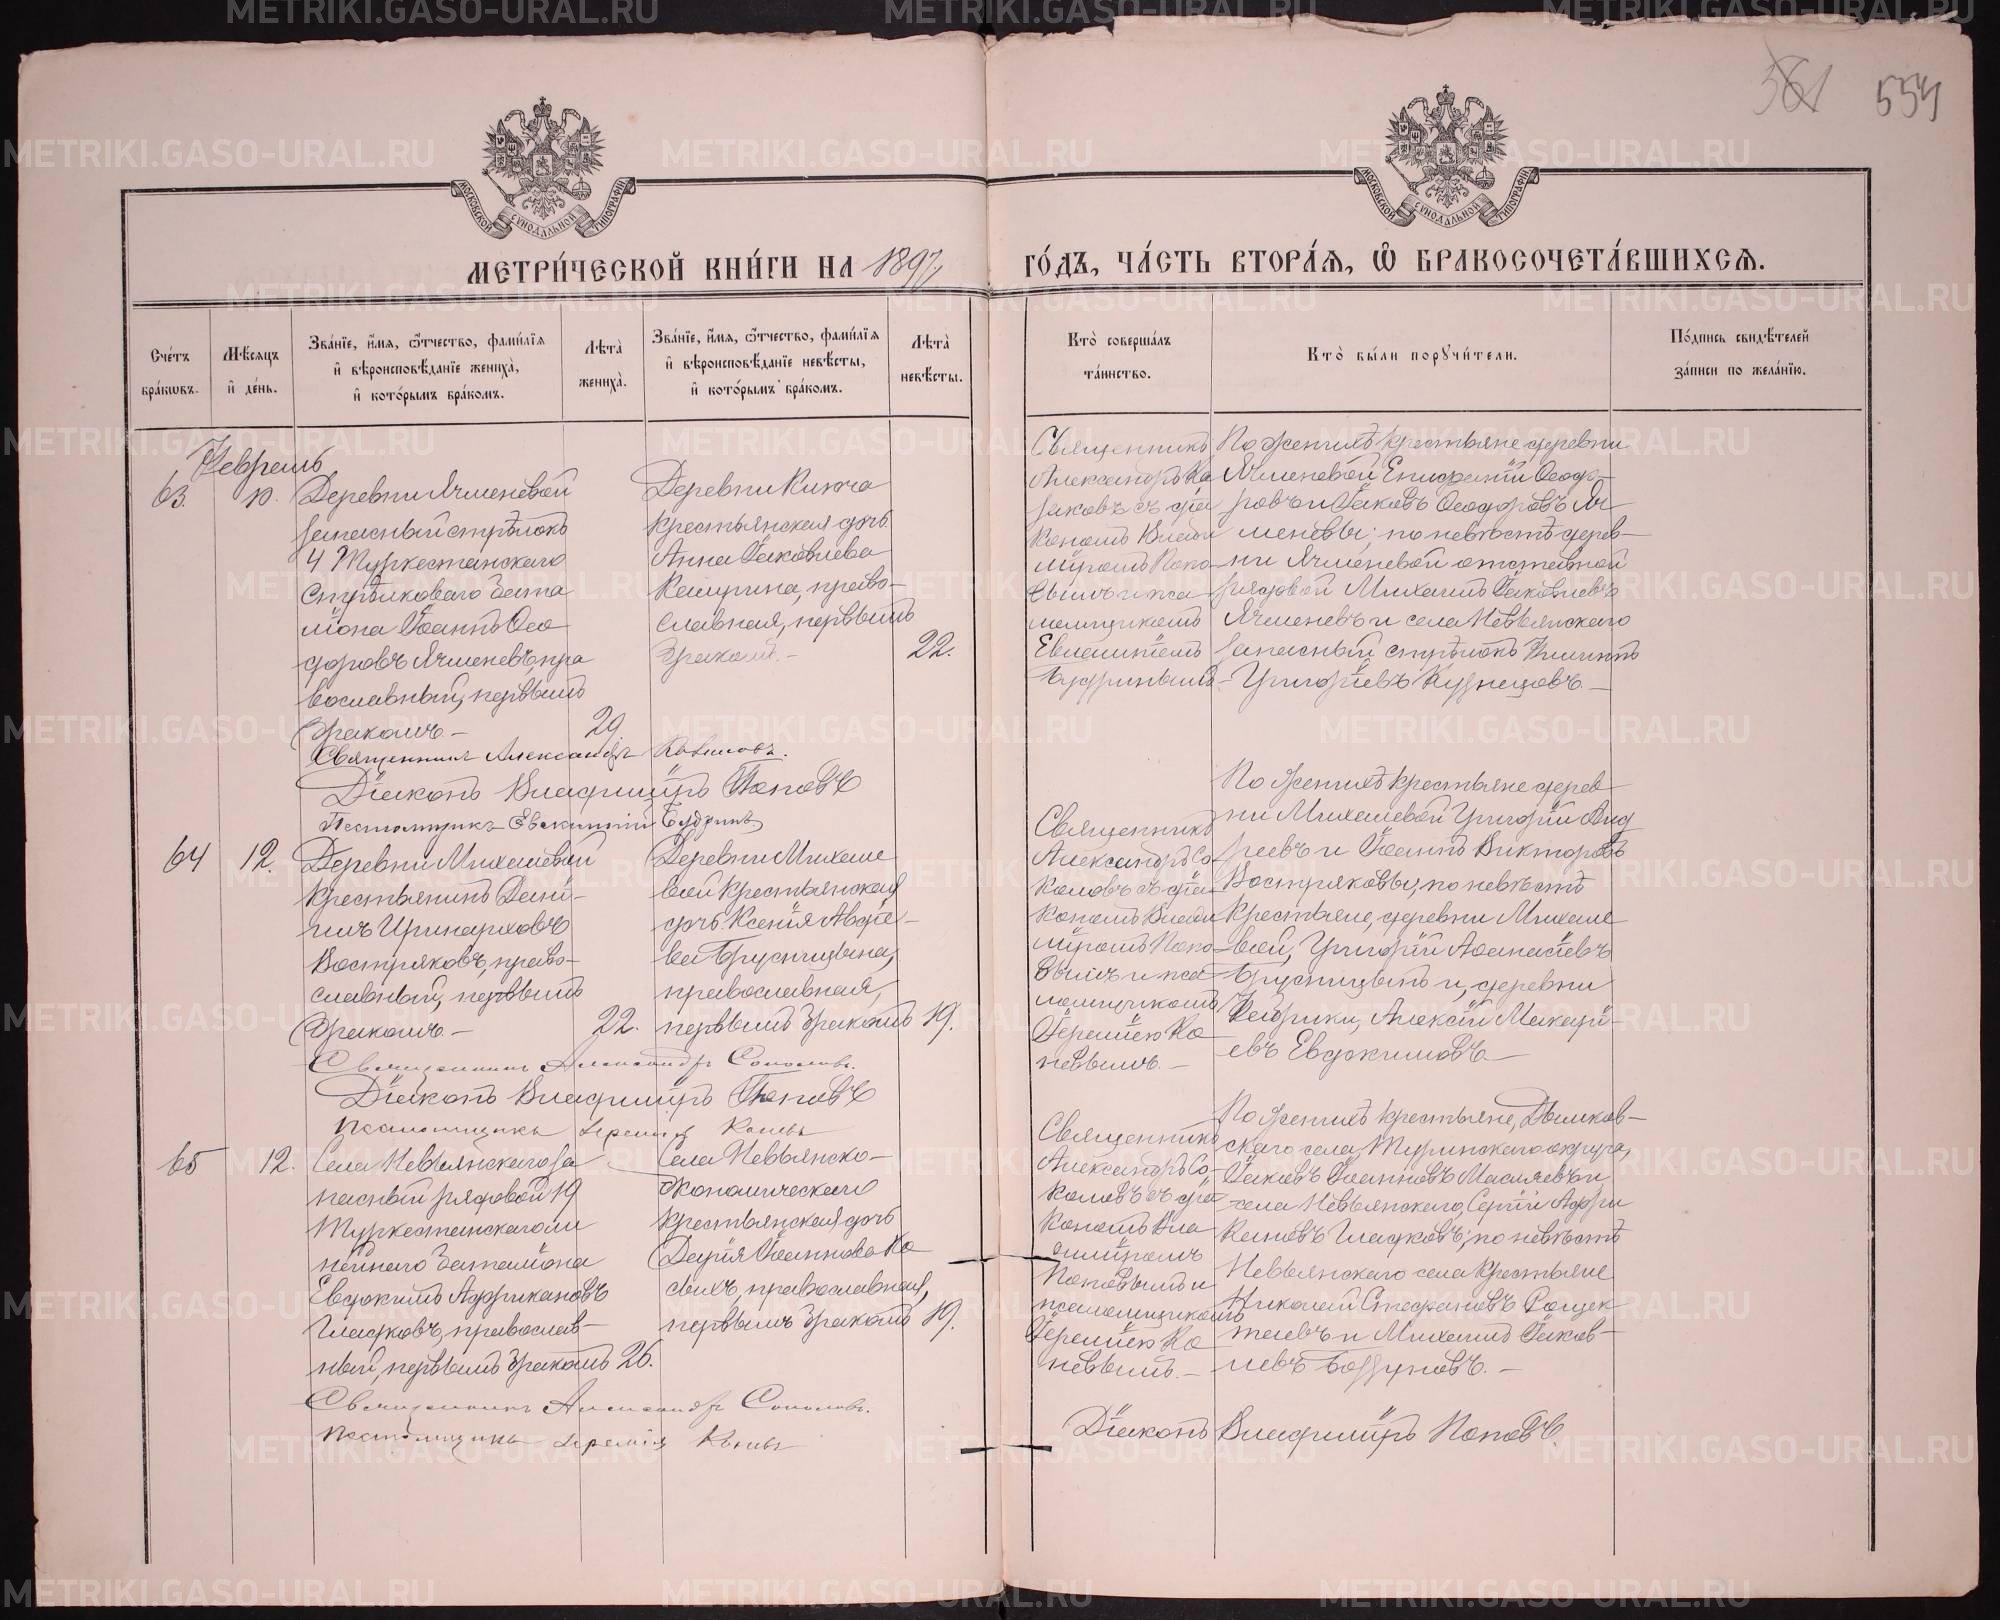 561 554
МОСКОВСКОЙ СѴНОДАЛЬНОЙ ТИПОГРАФІИ
МОСКОВСКОЙ СѴНОДАЛЬНОЙ ТИПОГРАФІИ
МЕТРИ́ЧЕСКОЙ КНИ́ГИ НА 1897
ГО́ДЪ, ЧА́СТЬ ВТОРА́Ѧ, Ѽ БРАКОСОЧЕТА́ВШИХСѦ.
Сче́тъ бра́кѡвъ.
Мѣ́сѧцъ и҆ де́нь.
Зва́нїе, и҆́мѧ, ѻ҆́тчество, фами́лїѧ
и҆ вѣроисповѣ́данїе жениха̀,
и҆ кото́рымъ бра́комъ.
Лѣта̀ жениха̀.
Зва́нїе, и҆́мѧ, ѻ҆́тчество, фами́лїѧ
и҆ вѣроисповѣ́данїе невѣ́сты,
и҆ кото́рымъ бра́комъ.
Лѣта̀ невѣ́сты.
Кто̀ соверша́лъ та́инство.
Кто̀ бы́ли порꙋчи́тели.
По́дпись свидѣ́телей за́писи по жела́нїю.
Февраль
63. 10.
Деревни Ячменевой
запасный стрѣлокъ
4 Туркестанскаго
стрѣлковаго бата
ліона Іоаннъ Ѳео
доровъ Ячменевъ, пра
вославный, первымъ
бракомъ.— 29.
Деревни Ключа
крестьянская дочь
Анна Іаковлева
Кашина, право-
славная, первымъ
бракомъ.— 22.
Священникъ
Александръ Ко
заковъ съ діа
кономъ Влади
міромъ Попо-
вымъ и пса
ломщикомъ
Евлампіемъ
Будринымъ.
По женихѣ крестьяне деревни
Ячменевой Епифаній Ѳеодо-
ровъ и Іаковъ Ѳеодоровъ Яч
меневы; по невѣстѣ дерев-
ни Ячменевой отставной
рядовой Михаилъ Іаковлевъ
Ячменевъ и села Невьянскаго
запасный стрѣлокъ Филиппъ
Григоріевъ Кузнецовъ.—
Священникъ Александръ
Діаконъ Владиміръ Поповъ
Псаломщикъ Евлампій Будринъ
64 12.
Деревни Михалевой
крестьянинъ Дані-
илъ Иринарховъ
Востряковъ, право-
славный, первымъ
бракомъ.— 22.
Деревни Михале
вой крестьянская
дочь Ксенія Авдіе-
ва Брусницына,
православная,
первымъ бракомъ 19.
Священникъ
Александръ Со-
коловъ съ діа
кономъ Влади
міромъ Попо-
вымъ и пса
ломщикомъ
Іереміею Ко
невымъ.—
По женихѣ крестьяне дерев
ни Михалевой Григорій Анд
реевъ и Іоаннъ Викторовъ
Востряковы; по невѣстѣ
крестьяне, деревни Михале
вой, Григорій Аѳанасіевъ
Брусницынъ и, деревни
Алексій
евъ Евдокимовъ.—
Священникъ Александръ Соколовъ.
Діаконъ Владиміръ Поповъ
Псаломщикъ Іеремія Коневъ
65 12.
Села Невьянскаго за
пасный рядовой 19
Туркестанскаго ли
нейнаго баталіона
Евдокимъ Африкановъ
Гладковъ, православ-
ный, первымъ бракомъ 26.
Села Невьянско-
экономическаго
крестьянская дочь
Дарія Іоаннова Ко
свихъ, православная,
первымъ бракомъ 19.
Священникъ
Александръ Со-
коловъ съ діа
кономъ Вла
диміромъ
Поповымъ и
псаломщикомъ
Іереміею Ко
невымъ.—
По женихѣ крестьяне,
скаго села, Туринскаго округа,
Іаковъ Іоанновъ Масляевъ и
села Невьянскаго, Сергій Афри
кановъ Гладковъ; по невѣстѣ
Невьянскаго села крестьяне
Николай Стефановъ
и Михаилъ Іаков-
левъ Болдуновъ.—
Священникъ Александръ Соколовъ.
Псаломщикъ Іеремія Коневъ
Діаконъ Владиміръ Поповъ.
METRIKI.GASO-URAL.RU